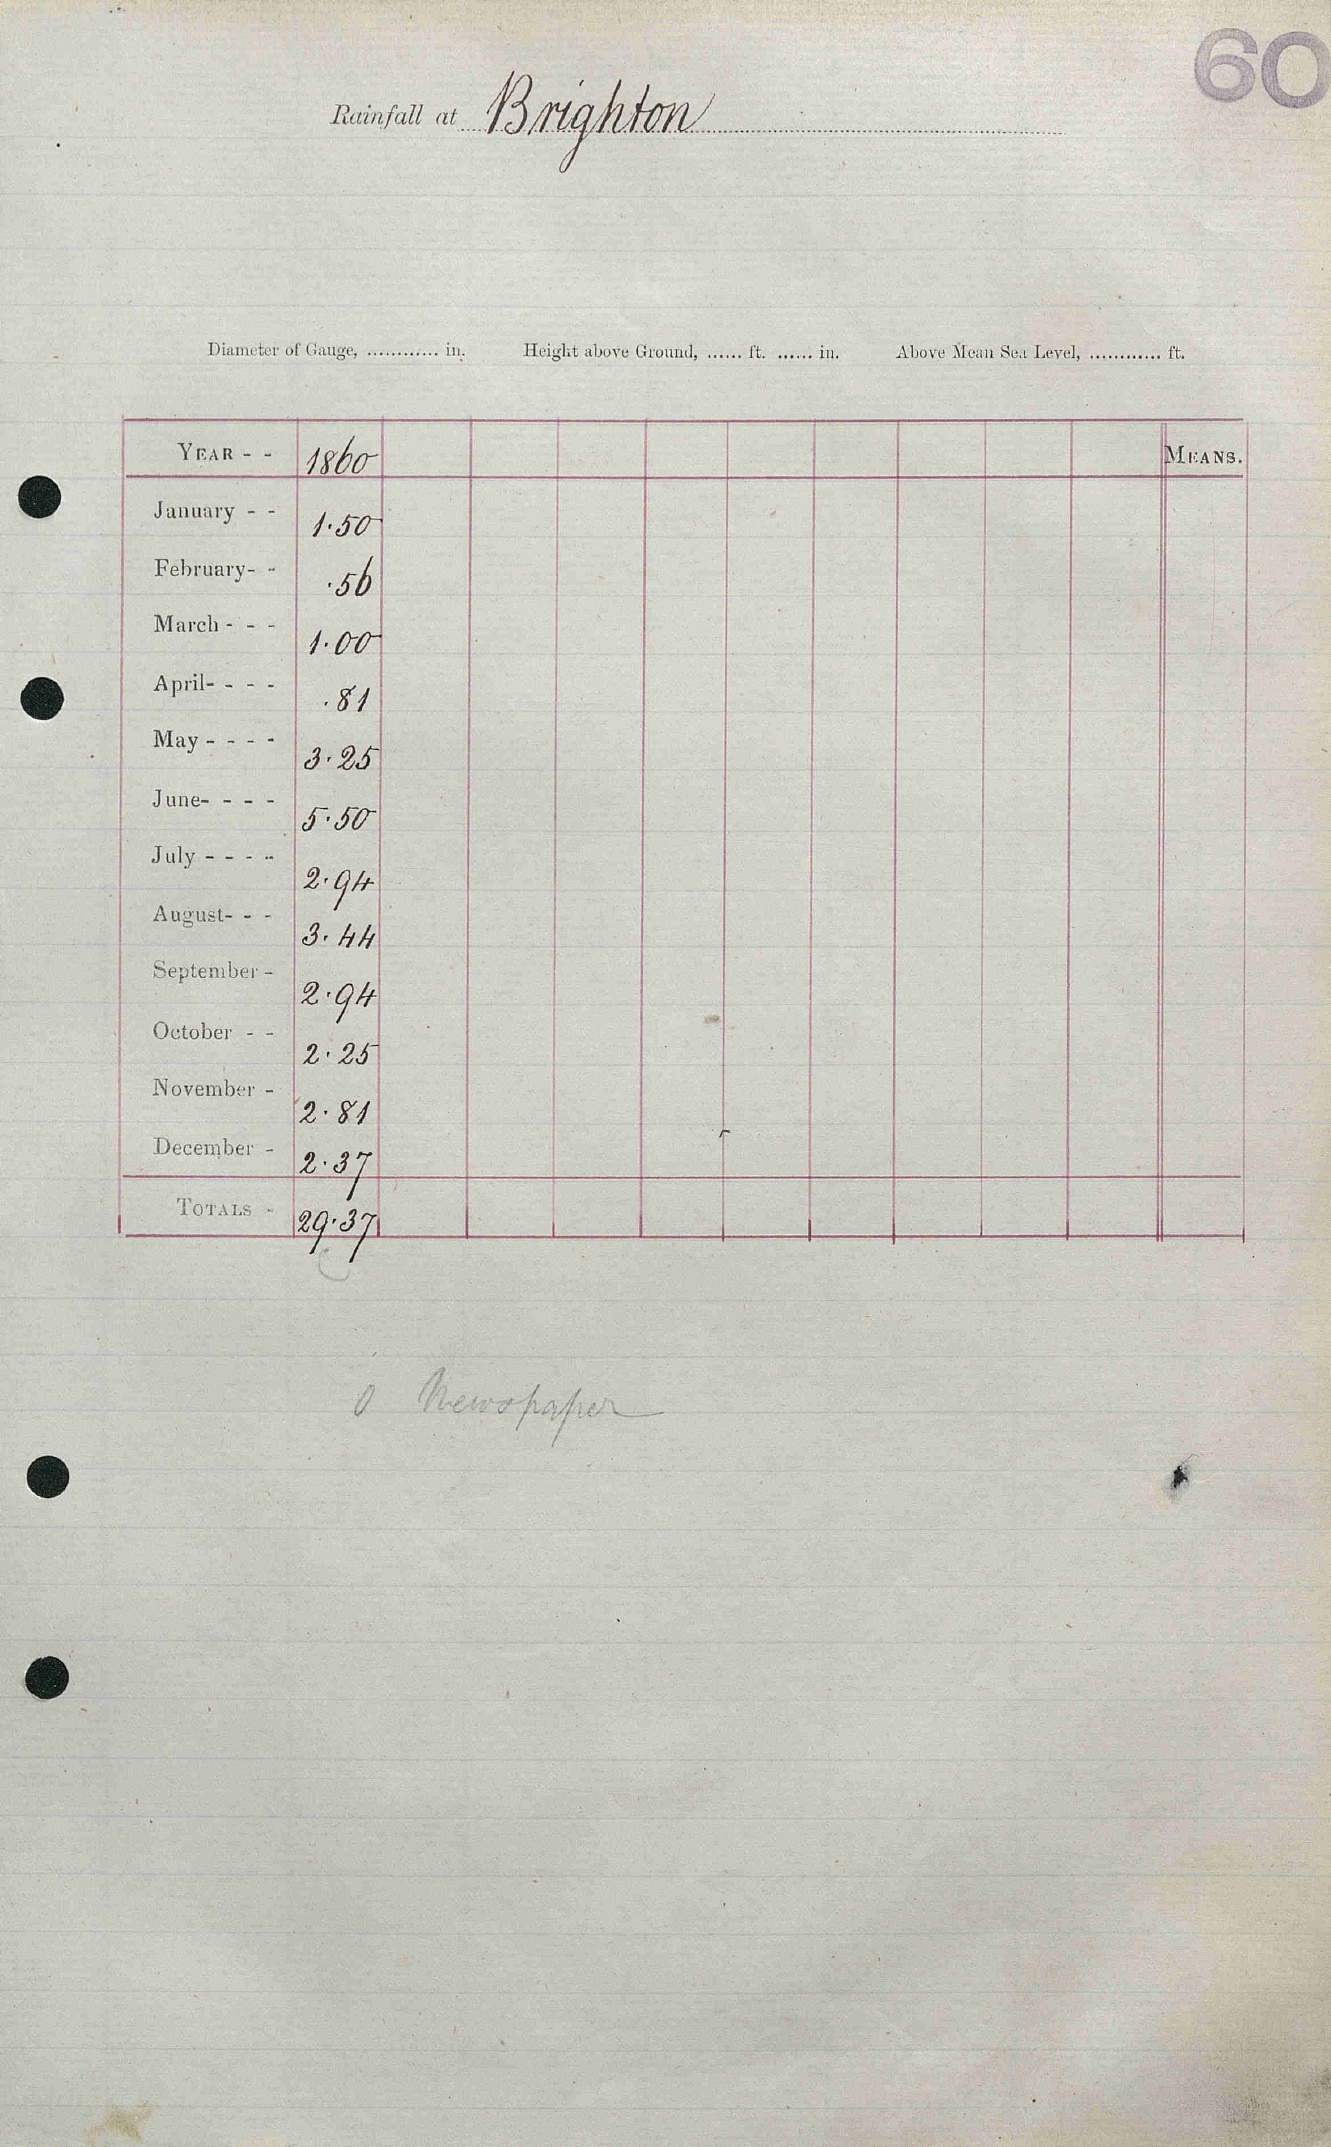 60
Rainfall at Brighton
Diameter of Gauge, ............ in. Height above Ground, ...... ft. ...... in. Above Mean Sea Level, ............ ft.
YEAR - - 1860 MEANS.
January - - 1.50
February- - .56
March - - - 1.00
April- - - - .81
May - - - - 3.25
June- - - - 5.50
July - - - - 2.94
August- - - 3.44
September - 2.94
October - - 2.25
November - 2.81
December - 2.37
TOTALS - 29.37
0 Newspaper